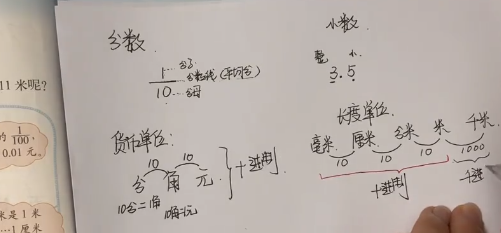 分数.
小数.
1...分子
...分数线(平均分)
10...分母
整 小
3.5
货币单位:
10 10
分 角 元
十进制
10分=1角
10角=1元
长度单位.
毫米 厘米 分米 米 千米
10 10 10 1000
十进制
千进
11 米呢?
的 1/100.
0.01 元。
米是 1 米
…1 厘米